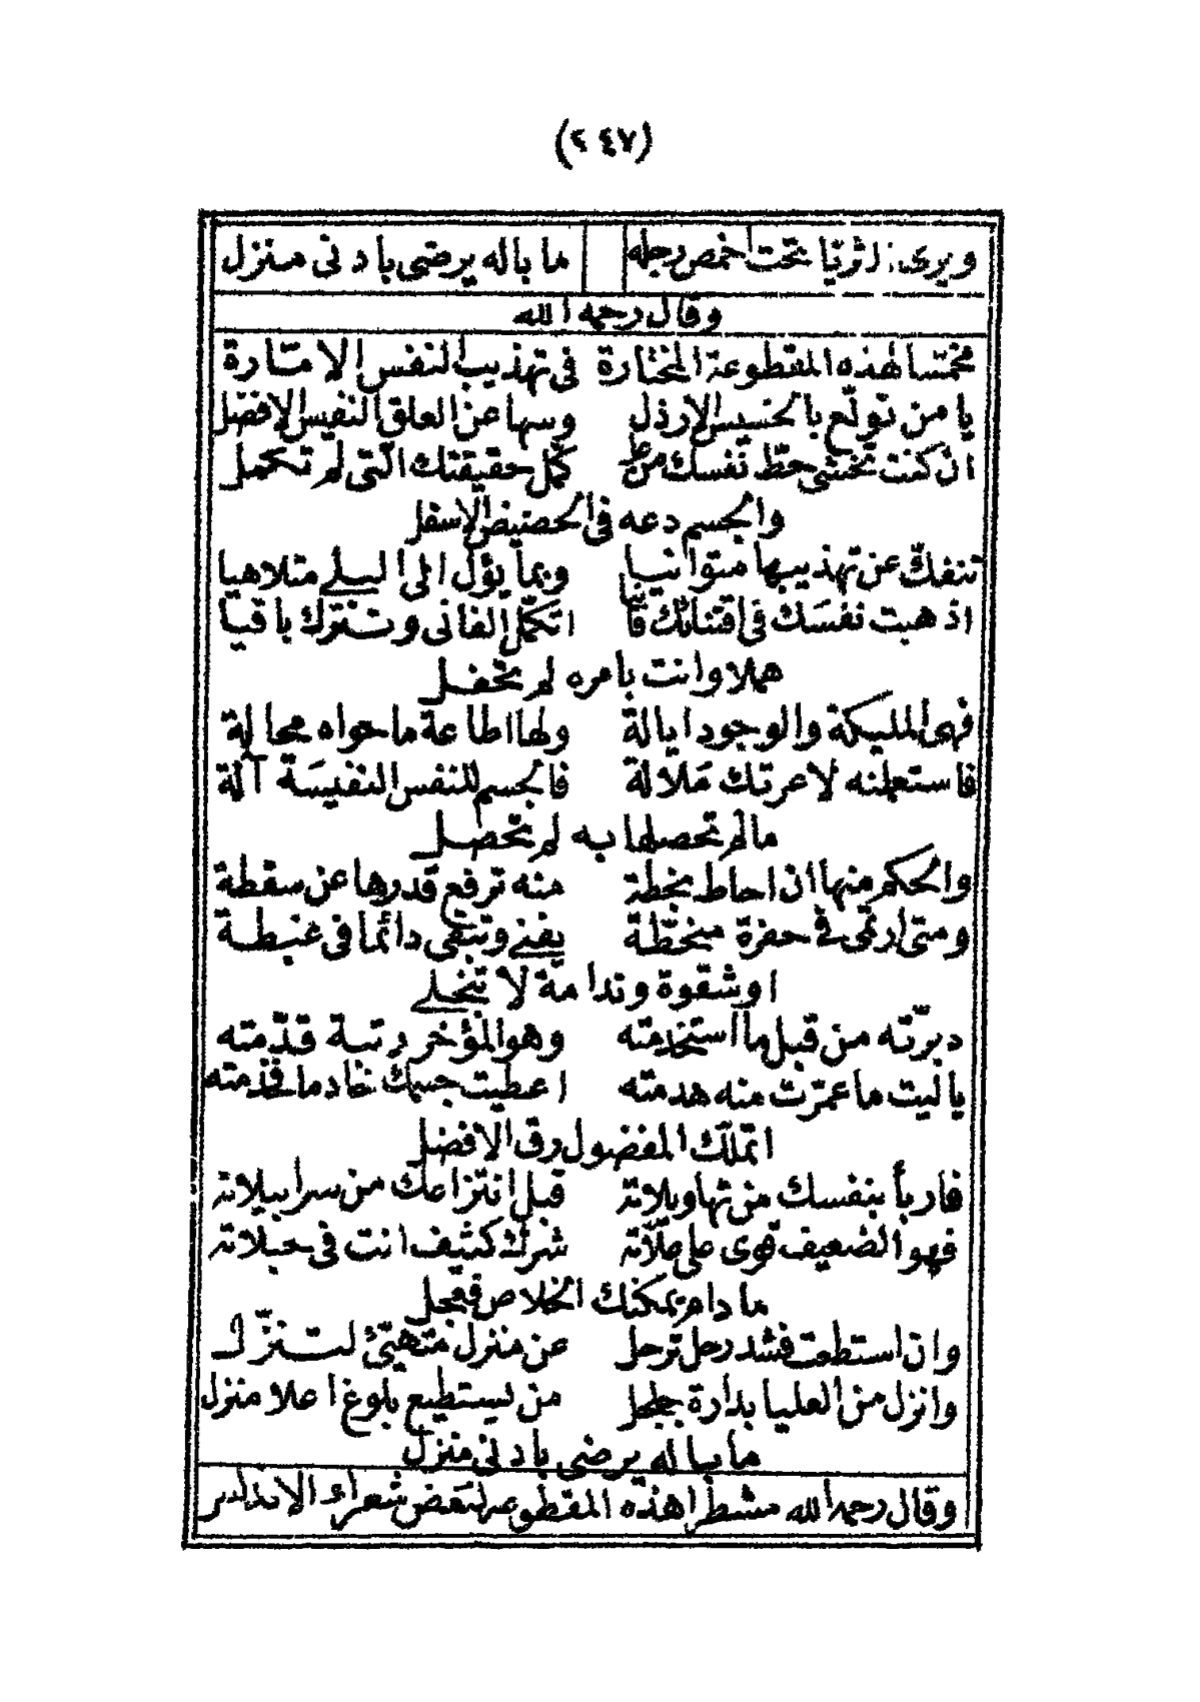 (٢٤٧)
ويرى الثريا تحت اخمص رجله ما باله يرضى بادنى منزل
وقال رحمه الله
مخمسا لهذه المقطوعة المختارة فى تهذيب النفس الامّارة
يا من تولّع بالخسيس الارذل وسها عن العلق النفيس الافضل
ان كنت تخشى حطّ نفسك من عل كمّل حقيقتك الّتى لم تكمل
والجسم دعه فى الحضيض الاسفل
تنفكّ عن تهذيبها متوانيا وبما يؤل الى البلى متلاهيا
اذهبت نفسَك فى اقتنائك فانيا اتكمّل الفانى وتترك باقيا
هملا وانت بامره لم تحفل
فهى المليكة والوجود ايالة ولها اطاعة ما حواه محالة
فاستعلمنه لا عرتك مَلالة فالجسم للنفس النفيسَة آلة
ما لم تحصلها به لم تحصل
والحكم منها ان احاط بخطة منه ترفع قدرها عن سقطة
ومتى ارتمى فى حفرة منحطّة يفنى وتبقى دائما فى غبطة
او شقوة وندامة لا تنجلى
دبرّته من قبل ما استخدمته وهو المؤخر رتبة قدّمته
يا ليت ما عمّرت منه هدمته اعطيت جسمك خادما فخدمته
اتملّك المفضول رق الافضل
فاربأ بنفسك من تهاويلاته قبل انتزاعك من سرابيلاته
فهو الضعيف قوى على علّاته شرك كثيف انت فى حبلاته
ما دام يمكنك الخلاص فعجل
وان استطعت فشد رحل ترحل عن منزل متهيّئ لتنزّل
وانزل من العليا بدارة جلجل من يستطيع بلوغ اعلا منزل
ما باله يرضى بادنى منزل
وقال رحمه الله مشطرا هذه المقطوعه لبعض شعراء الاندلس